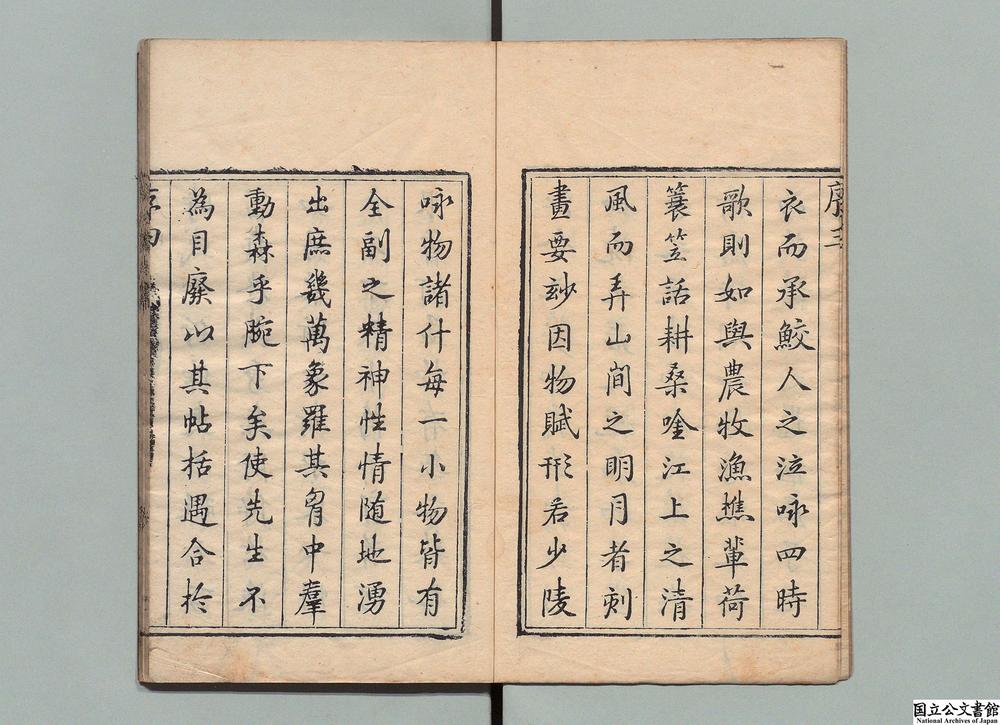 衣而承鮫人之泣咏四時
歌則如與農牧漁樵輩荷
簑笠話耕桑唫江上之清
風而弄山間之明月者刻
畫要玅因物賦形若少陵
咏物諸什每一小物皆有
全副之精神性情随地湧
出庶幾萬象羅其胷中羣
動森乎腕下矣使先生不
為目廢以其帖括遇合於
国立公文書館
National Archives of Japan